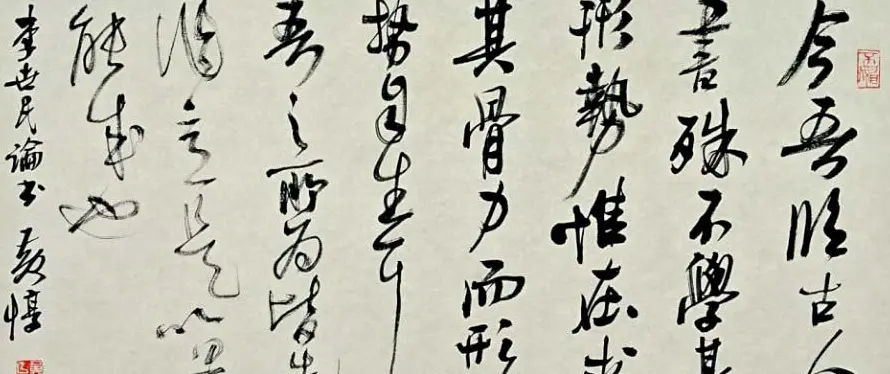 今吾临古人
書殊不學其
形勢惟在求
其骨力而形
势自生耳
吾之所为皆先
意是以果
能成也
李世民論书 黄惇